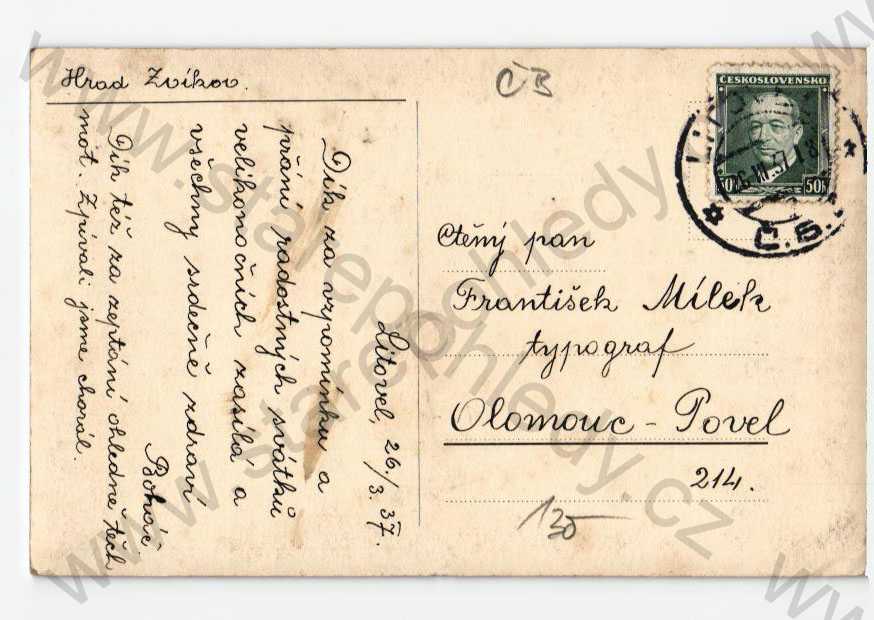 Hrad Zvíkov.
Litovel, 26./3. 37.
Dík za vzpomínku a
přání radostných svátků
velikonočních zasílá a
všechny srdečně zdraví
Boháč
Dík též za zeptání ohledně těch
mot. Zpívali jsme chorál.
ČB
ČESKOSLOVENSKO
50h 50h
LITOVEL
26.III.37
Č.S.
Ctěný pan
František Mílek
typograf
Olomouc - Povel
214.
135
www.starepohledy.cz
www.starepohledy.cz